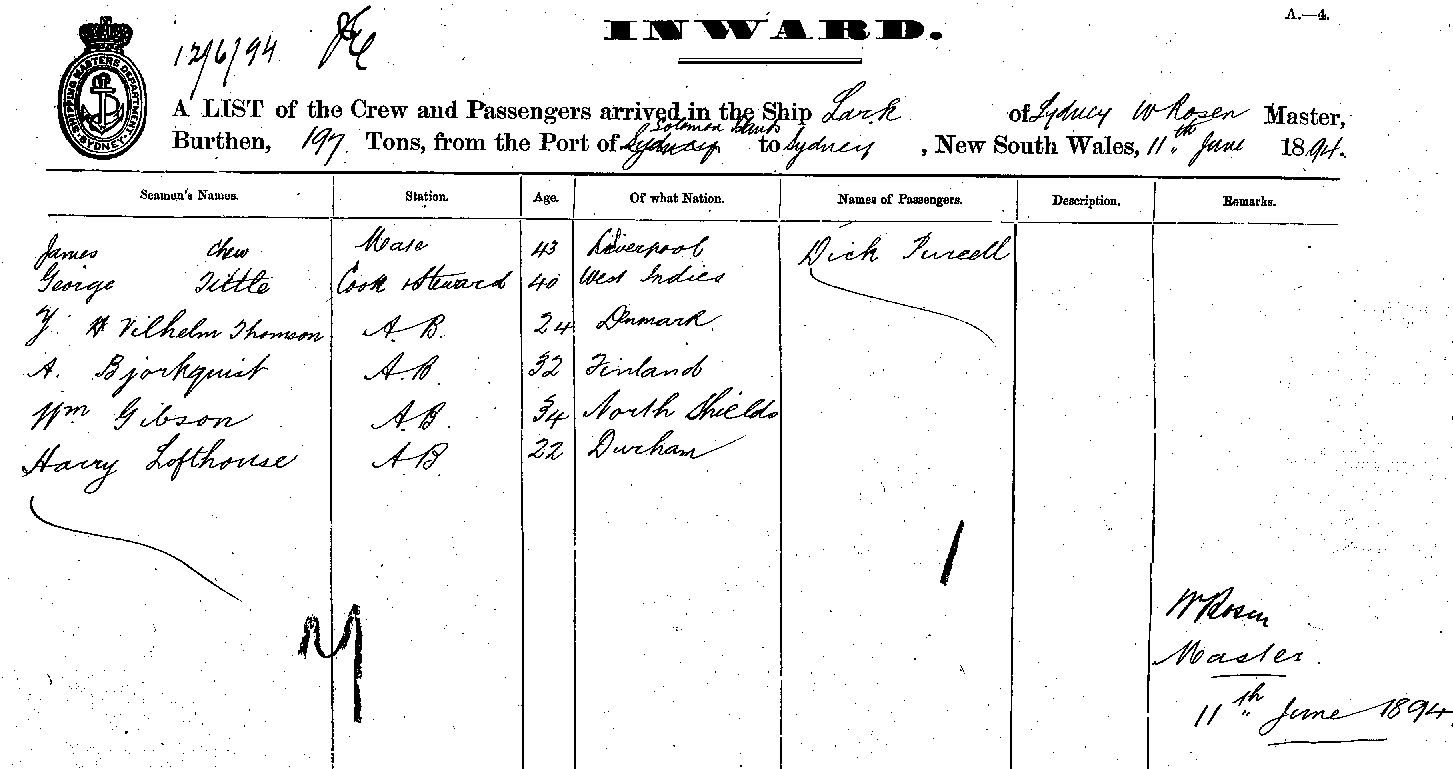 A.—4.
INWARD.
12/6/94
SHIPPING MASTERS DEPARTMENT SYDNEY
A LIST of the Crew and Passengers arrived in the Ship Lark of Sydney W Rosen Master,
Solomon Islands
Burthen, 197 Tons, from the Port of Sydney to Sydney, New South Wales, 11th June 1894.
Seamen's Names. Station. Age. Of what Nation. Names of Passengers. Description. Remarks.
James Chew Mate 43 Liverpool Dick Purcell
George Tittle Cook & Steward 40 West Indies
Vilhelm Thomson A.B. 24 Denmark
A. Bjorkquist A.B. 32 Finland
Wm Gibson A.B. 34 North Shields
Harry Lofthouse A.B. 22 Durham
W Rosen
Master.
11th June 1894